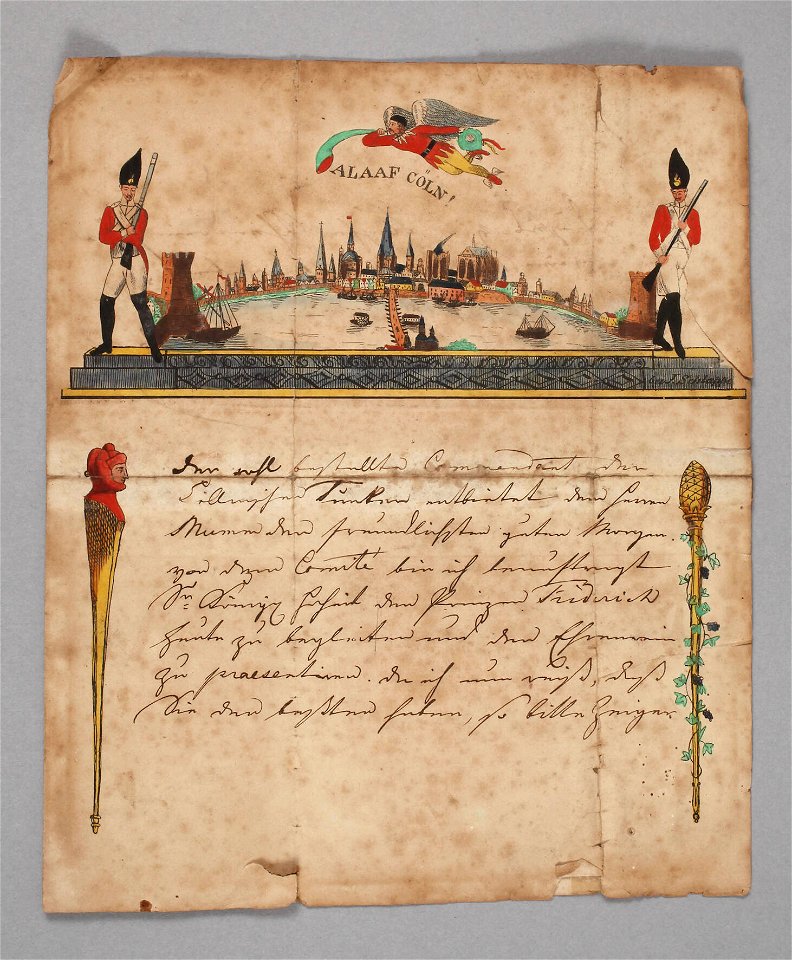 ALAAF CÖLN!
Der wohl bestellte Commandant der
Funken entbietet dem Herrn
Mumm den freundlichsten guten Morgen.
von dem Comité bin ich beauftragt
Sr. Königl. Hoheit den Prinzen Friderich
heute zu begleiten und den Ehrenwein
zu praesentiren. da ich nun weiß, daß
Sie den beßten haben, so bitte Zeiger